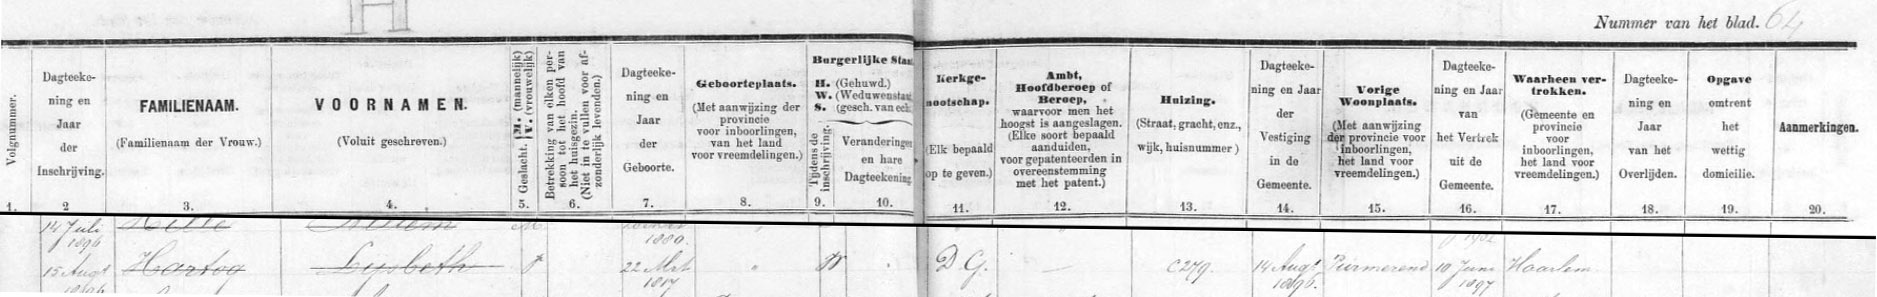 H
Nummer van het blad. 64
Volgnummer.
1.
Dagteeke-
ning en
Jaar
der
Inschrijving.
2
FAMILIENAAM.
(Familienaam der Vrouw.)
3.
VOORNAMEN.
(Voluit geschreven.)
4.
Geslacht. { M. (mannelijk)
V. (vrouwelijk)
5.
Betrekking van elken per-
soon tot het hoofd van
het huisgezin.
(Niet in te vullen voor af-
zonderlijk levenden.)
6.
Dagteeke-
ning en
Jaar
der
Geboorte.
7.
Geboorteplaats.
(Met aanwijzing der
provincie
voor inboorlingen,
van het land
voor vreemdelingen.)
8.
Burgerlijke Staat
H. (Gehuwd.)
W. (Weduwenstaat
S. (gesch. van echt
Tijdens de
inschrijving.
9.
Veranderingen
en hare
Dagteekening
10.
Kerkge-
nootschap.
(Elk bepaald
op te geven.)
11.
Ambt,
Hoofdberoep of
Beroep,
waarvoor men het
hoogst is aangeslagen.
(Elke soort bepaald
aanduiden,
voor gepatenteerden in
overeenstemming
met het patent.)
12.
Huizing.
(Straat, gracht, enz.,
wijk, huisnummer)
13.
Dagteeke-
ning en Jaar
der
Vestiging
in de
Gemeente.
14.
Vorige
Woonplaats.
(Met aanwijzing
der provincie voor
inboorlingen,
het land voor
vreemdelingen.)
15.
Dagteeke-
ning en Jaar
van
het Vertrek
uit de
Gemeente.
16.
Waarheen ver-
trokken.
(Gemeente en
provincie
voor
inboorlingen,
het land voor
vreemdelingen.)
17.
Dagteeke-
ning en
Jaar
van het
Overlijden.
18.
Opgave
omtrent
het
wettig
domicilie.
19.
Aanmerkingen.
20.
14 Juli
1896
Willem
M
1880.
15 Augt Hartog Lysbeth V 22 Mrt " W D G. — C279. 14 Augt Purmerend 10 Juni Haarlem
1896 1817 1896. 1897